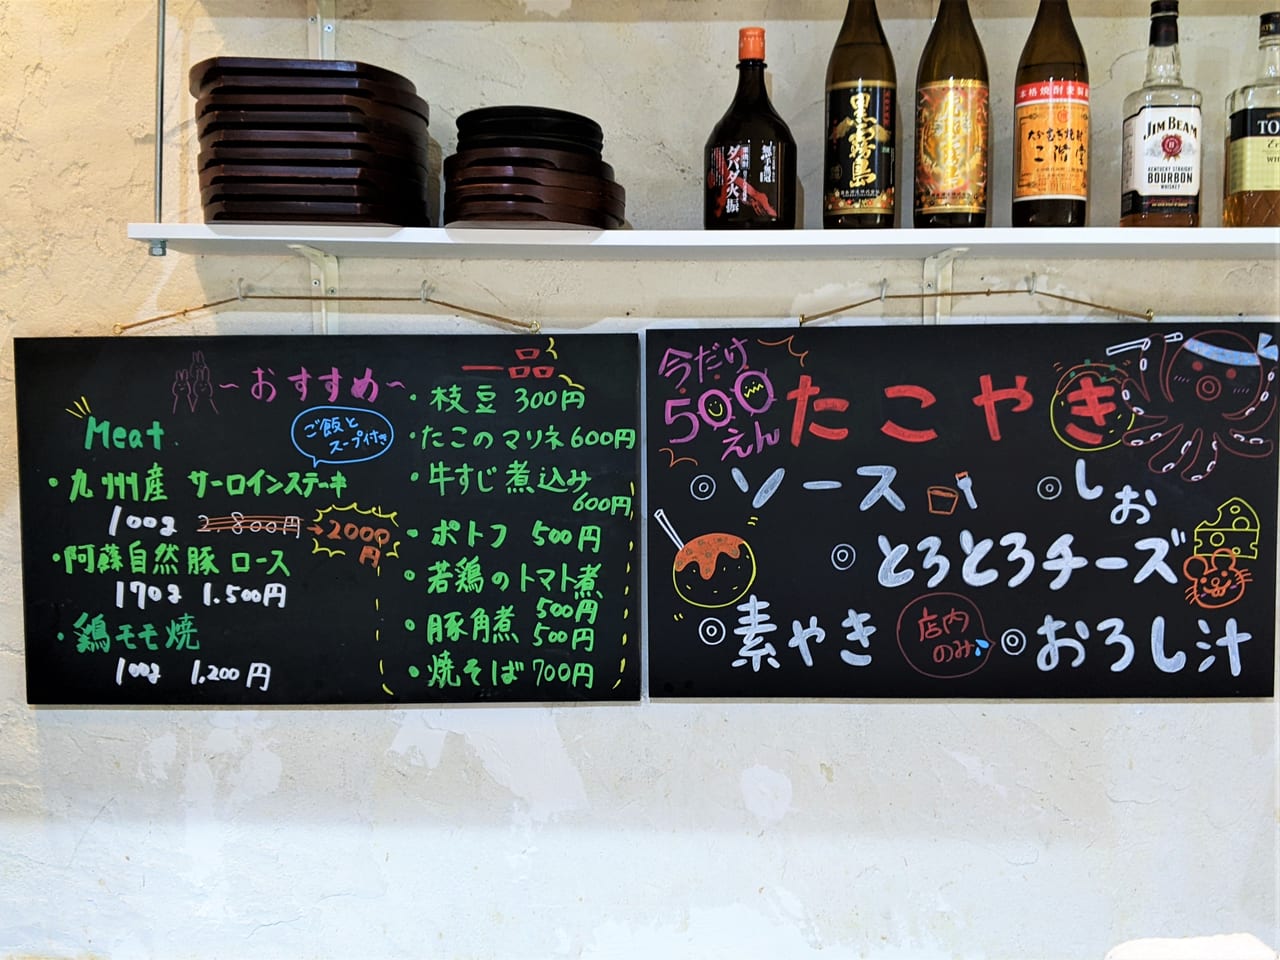 無手無冠
ダバダ火振
黒霧島
本格焼酎 麦製
大分むぎ焼酎
二階堂
JIM BEAM
KENTUCKY STRAIGHT
BOURBON
WHISKEY
~おすすめ~
Meat
ご飯と
スープ付き
・九州産 サーロインステーキ
100g 2,800円→2000円
・阿蘇自然豚 ロース
170g 1.500円
・鶏モモ焼
100g 1,200円
一品
・枝豆 300円
・たこのマリネ 600円
・牛すじ煮込み
600円
・ポトフ 500円
・若鶏のトマト煮
500円
・豚角煮 500円
・焼そば 700円
今だけ
500
えん
たこやき
◎ソース
◎しお
◎とろとろチーズ
◎素やき
店内
のみ
◎おろし汁